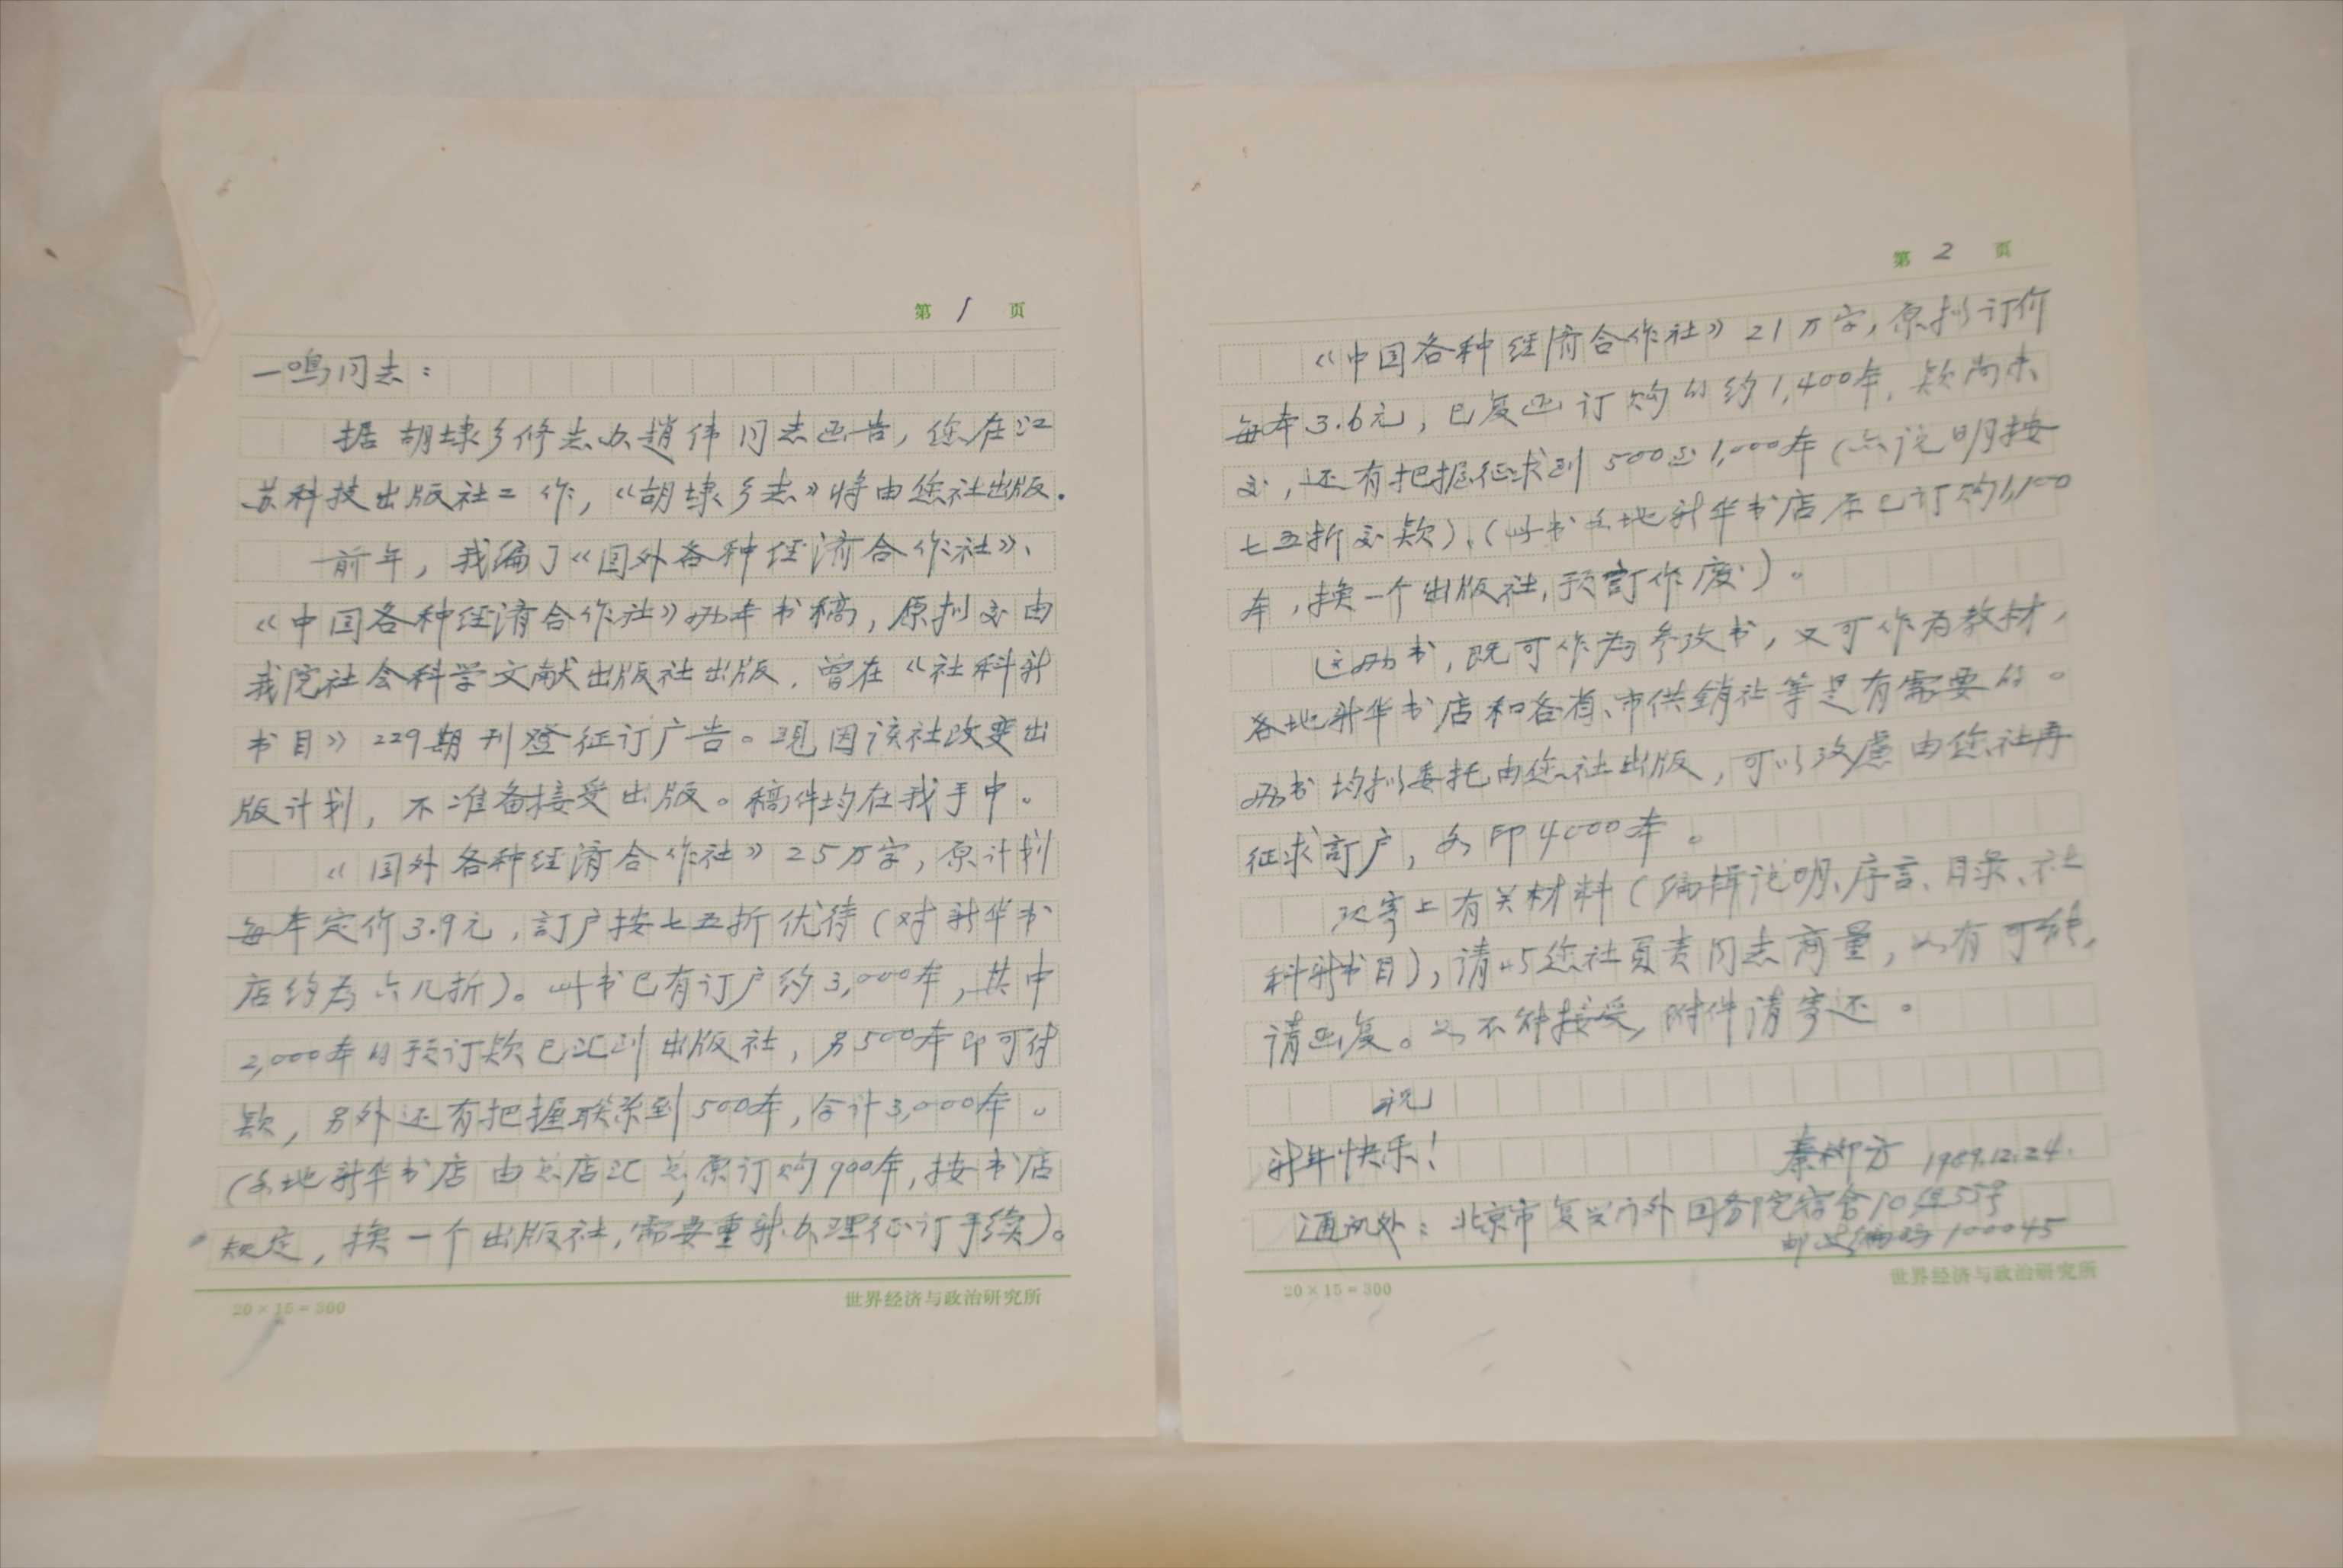 第 1 页
一鸣同志：
据胡埭乡修志办趙伟同志函告，您在江
苏科技出版社工作，《胡埭乡志》将由您社出版．
前年，我编了《国外各种经济合作社》、
《中国各种经济合作社》两本书稿，原拟交由
我院社会科学文献出版社出版．曾在《社科新
书目》229期刊登征订广告。现因该社改变出
版计划，不准备接受出版。稿件均在我手中。
《国外各种经济合作社》25万字，原计划
每本定价3.9元，訂户按七五折优待（对新华书
店约为六几折）。此书已有订户约3,000本，其中
2,000本的预订款已汇到出版社，另500本即可付
款，另外还有把握联系到500本，合计3,000本。
（各地新华书店由总店汇总，原订购900本，按书店
规定，换一个出版社，需要重新办理征订手续）。
20×15=300
世界经济与政治研究所
第 2 页
《中国各种经济合作社》21万字，原拟订价
每本3.6元，已复函订购的约1,400本，款尚未
交，还有把握征求到500至1,000本（亦说明按
七五折交款）、（此书各地新华书店原已订购1,100
本，换一个出版社，预訂作废）。
这两书，既可作为参攷书，又可作为教材，
各地新华书店和各省、市供銷社等是有需要的。
两书均拟委托由您社出版，可以攷慮由您社再
征求訂户，各印4000本。
现寄上有关材料（编辑说明、序言、目录、社
科新书目），请与您社負责同志商量，如有可能，
请函复。如不能接受，附件请寄还。
祝
新年快乐！
秦柳方 1989.12.24.
通讯处：北京市复兴门外国务院宿舍10组55号
邮政编码100045
20×15=300
世界经济与政治研究所